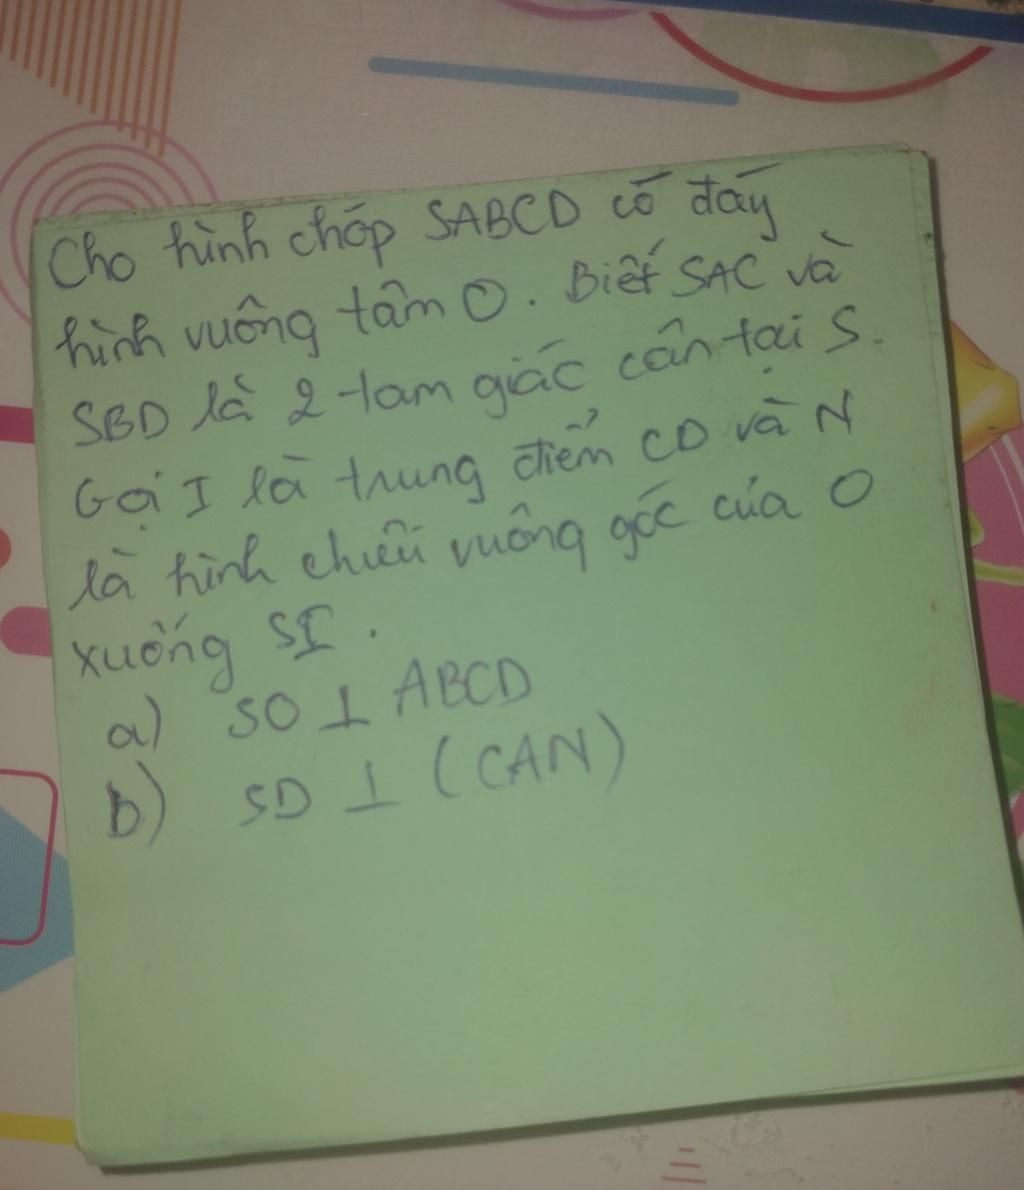 Cho hình chóp SABCD có đáy
hình vuông tâm O. Biết SAC và
SBD là 2 tam giác cân tại S.
Gọi I là trung điểm CD và N
là hình chiếu vuông góc của O
xuống SI.
a) SO ⊥ ABCD
b) SD ⊥ (CAN)